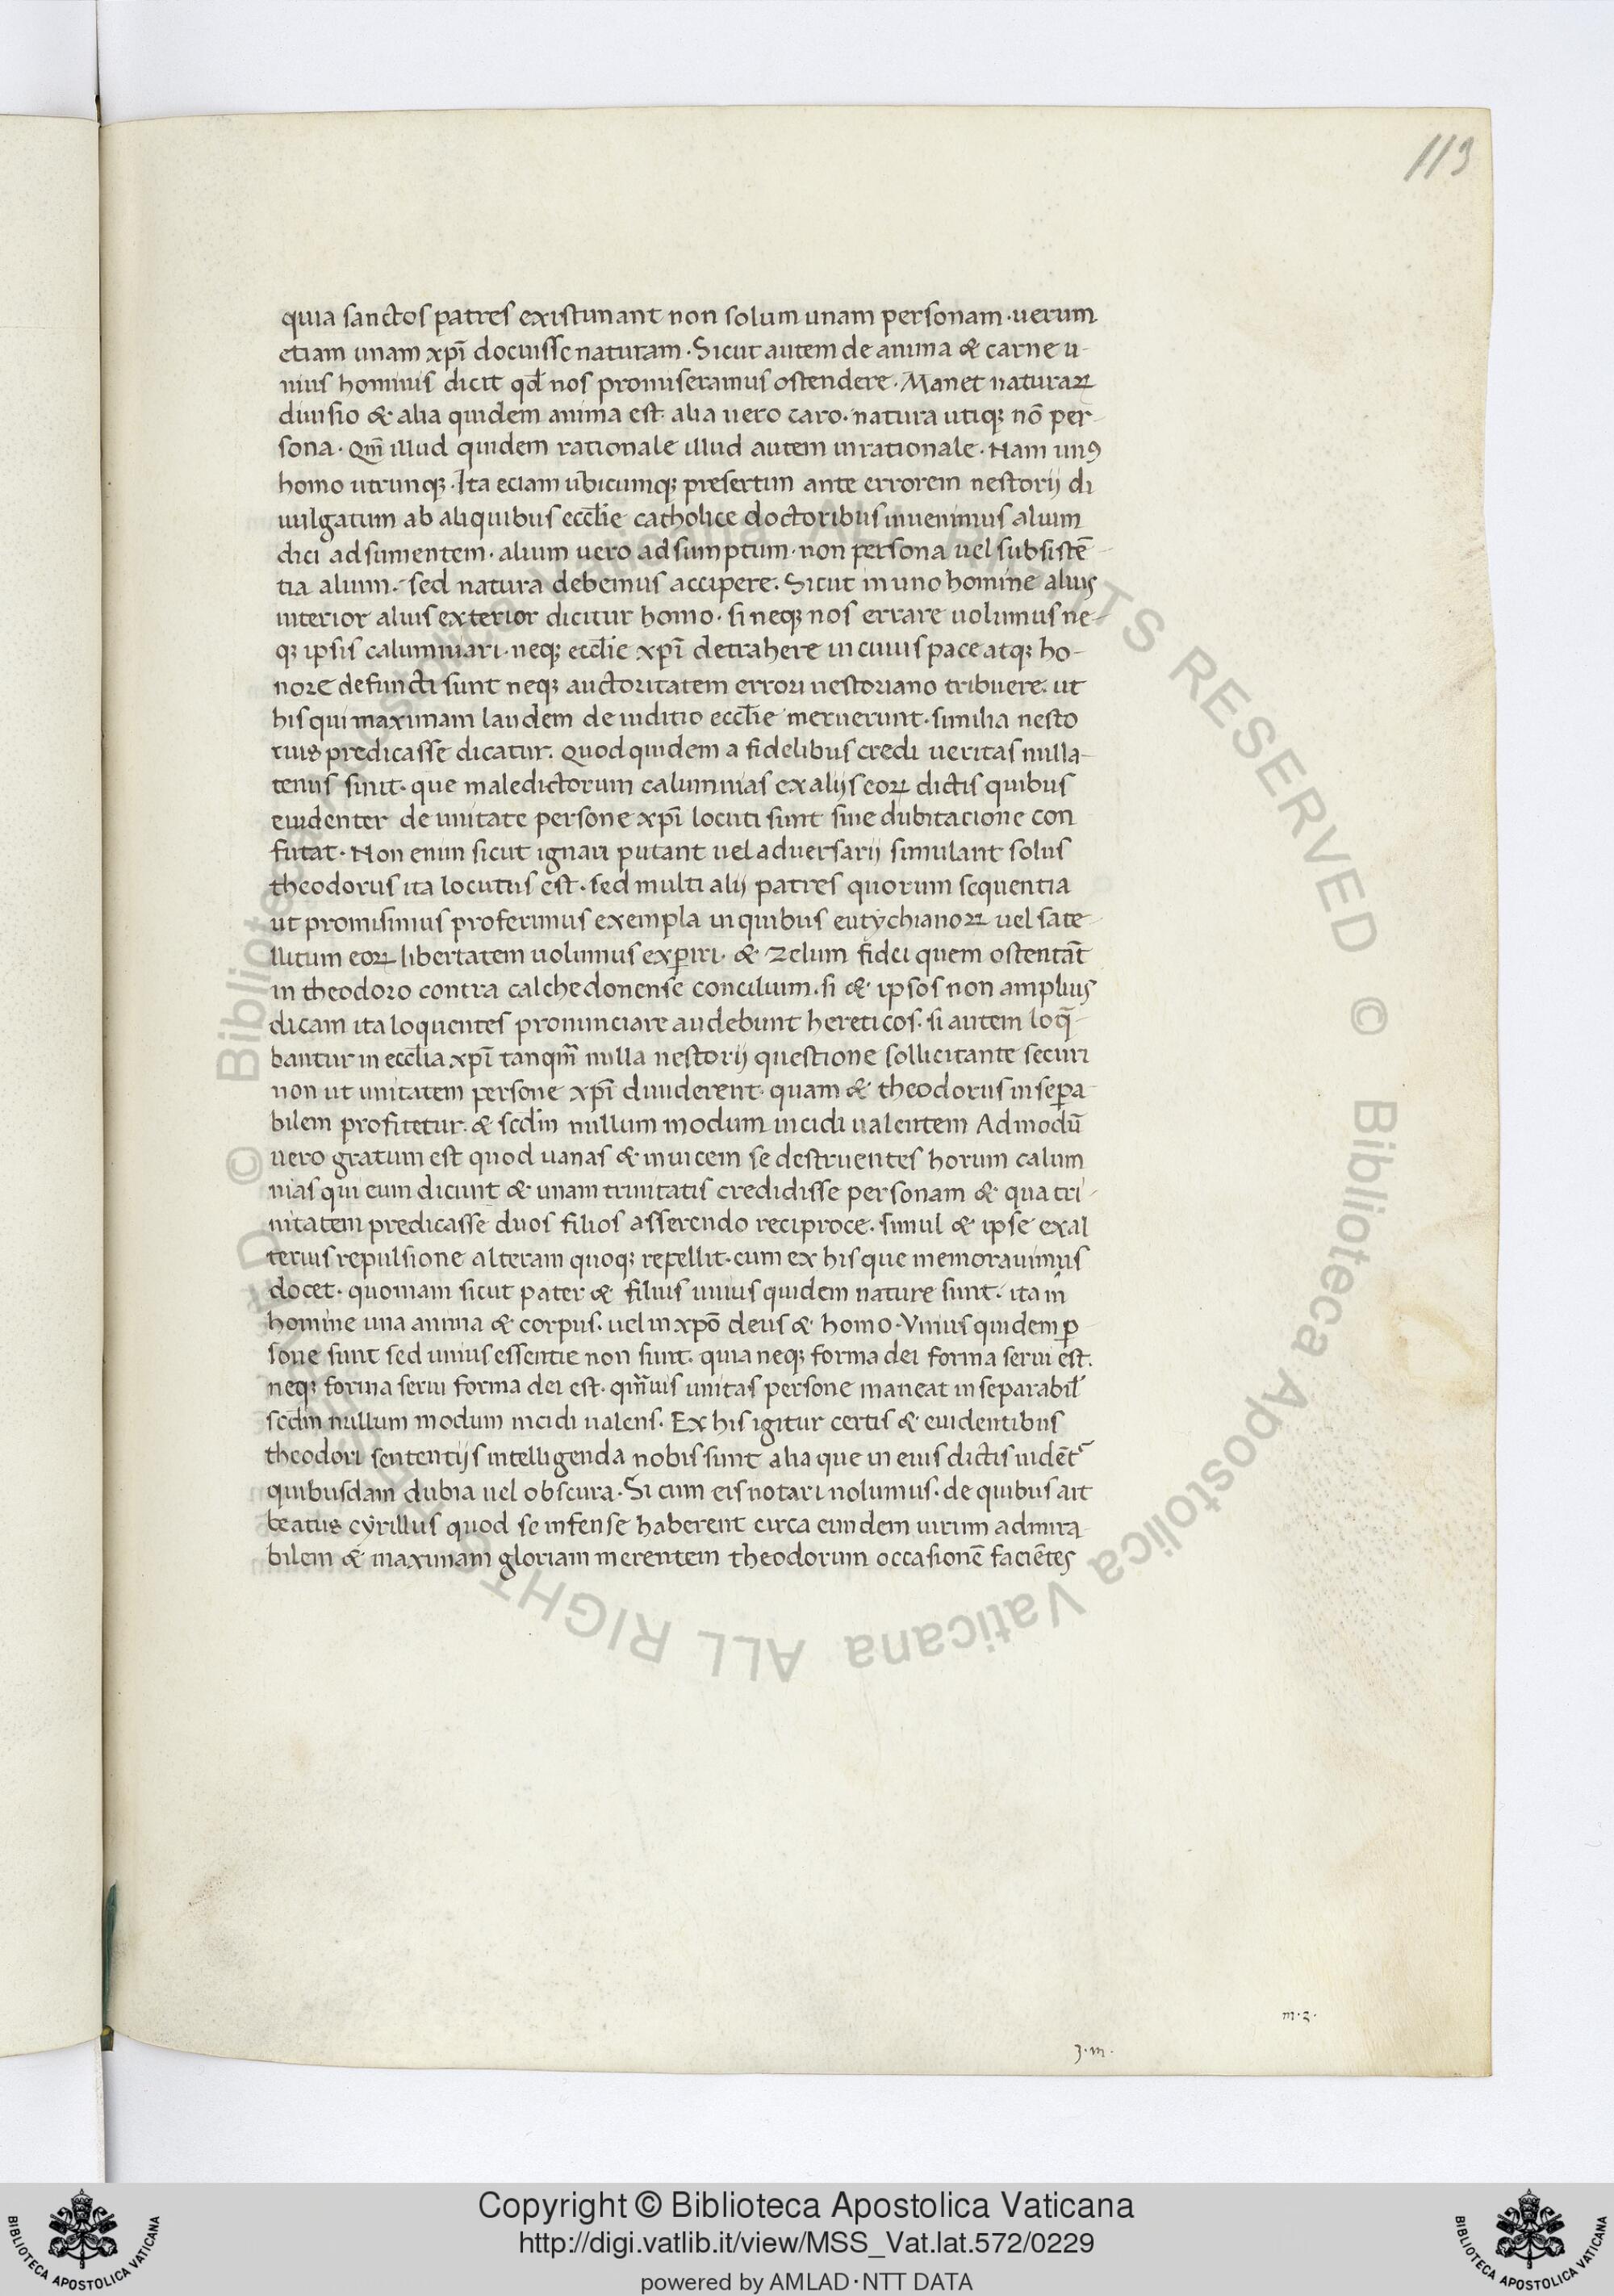 113
quia sanctos patres existimant non solum unam personam · uerum
etiam unam xp̄i docuisse naturam · Sicut autem de anima & carne u-
nius hominis dicit qd̄ nos promiseramus ostendere · Manet naturaꝝ
diuisio & alia quidem anima est · alia uero caro · natura utiqꝫ nō per-
sona · Qm̄ illud quidem rationale illud autem inrationale · Nam unꝰ
homo utrunqꝫ · Ita eciam ubicumqꝫ presertim ante errorem nestorij di
uulgatum ab aliquibus eccl̄ie catholice doctoribus inuenimus alium
dici adsumentem · alium uero adsumptum · non persona uel subsistē-
tia alium · sed natura debemus accipere · Sicut in uno homine alius
interior alius exterior dicitur homo · si neqꝫ nos errare uolumus ne-
qꝫ ipsis calumniari · neqꝫ eccl̄ie xp̄i detrahere in cuius pace atqꝫ ho-
nore defuncti sunt neqꝫ auctoritatem errori nestoriano tribuere · ut
his qui maximam laudem de iuditio eccl̄ie meruerunt · similia nesto
rius predicasse dicatur · Quod quidem a fidelibus credi ueritas nulla-
tenus sinit · que maledictorum calumnias ex alijs eoꝝ dictis quibus
euidenter de unitate persone xp̄i locuti sunt sine dubitacione con
futat · Non enim sicut ignari putant uel aduersarij simulant solus
theodorus ita locutus est · sed multi alij patres quorum sequentia
ut promisimus proferimus exempla in quibus eutychianoꝝ uel sate-
llitum eoꝝ libertatem uolumus experiri · & zelum fidei quem ostentāt
in theodoro contra calchedonense concilium · si & ipsos non amplius
dicam ita loquentes pronunciare audebunt hereticos · si autem loq̄-
bantur in eccl̄ia xp̄i tanqm̄ nulla nestorij questione sollicitante securi
non ut unitatem persone xp̄i diuiderent · quam & theodorus insepa-
bilem profitetur · & scdm̄ nullum modum incidi ualentem Admodū
uero gratum est quod uanas & inuicem se destruentes horum calum
nias qui eum dicunt & unam trinitatis credidisse personam & qua tri-
nitatem predicasse duos filios asserendo reciproce · simul & ipse exal
terius repulsione alteram quoqꝫ repellit · cum ex his que memorauimus
docet · quoniam sicut pater & filius unius quidem nature sunt · ita in
homine una anima & corpus · uel in xp̄o deus & homo · Vnius quidem ꝑ
sone sunt sed unius essentie non sunt · quia neqꝫ forma dei forma serui est ·
neqꝫ forma serui forma dei est · qm̄uis unitas persone maneat inseparabil̄
scdm̄ nullum modum incidi ualens · Ex his igitur certis & euidentibus
theodori sententijs intelligenda nobis sunt alia que in eius dictis uidēt᷑
quibusdam dubia uel obscura · Si cum eis notari nolumus · de quibus ait
beatus cyrillus quod se infense haberent circa eundem uirum admira-
bilem & maximam gloriam merentem theodorum occasionē faciētes
m · 2 ·
3 · m ·
© Biblioteca Apostolica Vaticana ALL RIGHTS RESERVED © Biblioteca Apostolica Vaticana ALL RIGHTS RESERVED
Copyright © Biblioteca Apostolica Vaticana
http://digi.vatlib.it/view/MSS_Vat.lat.572/0229
powered by AMLAD·NTT DATA
BIBLIOTECA APOSTOLICA VATICANA
BIBLIOTECA APOSTOLICA VATICANA